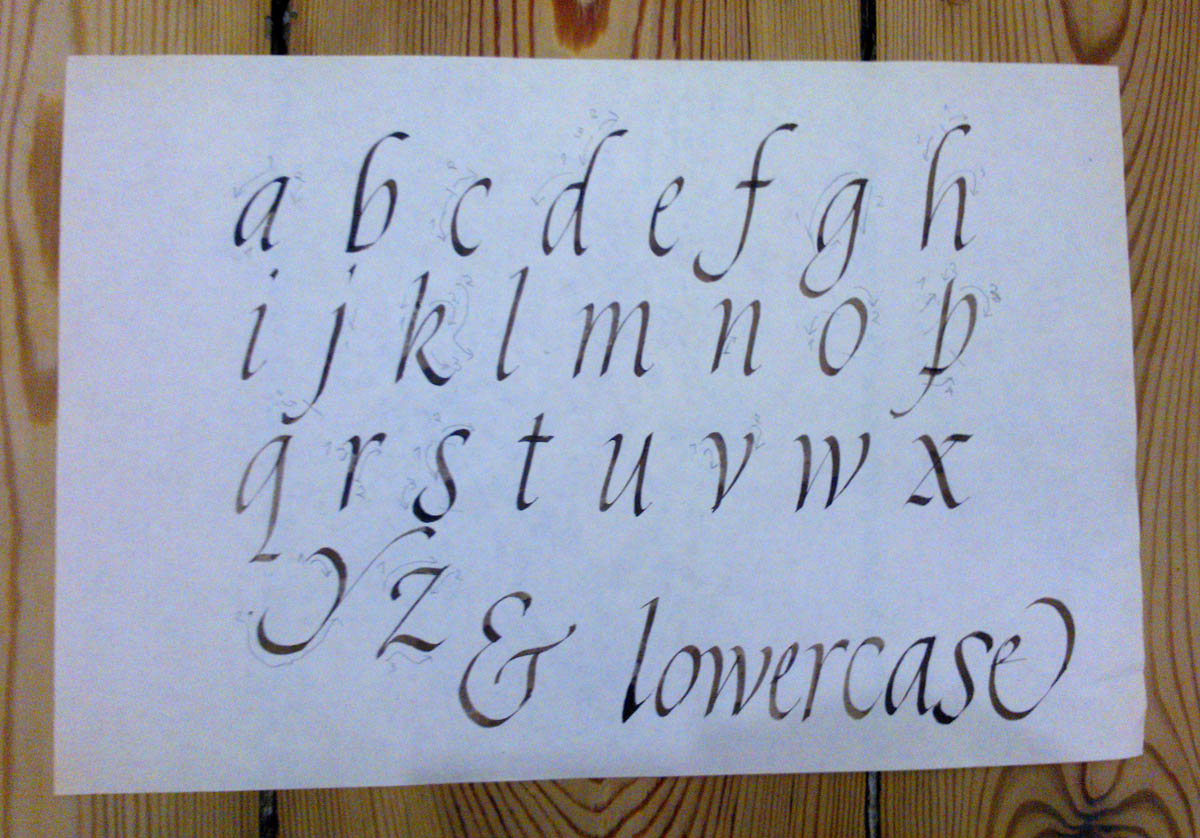 a b c d e f g h
i j k l m n o p
q r s t u v w x
y z & lowercase